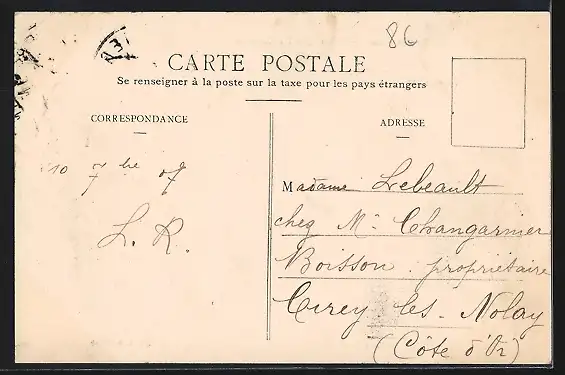 86
CARTE POSTALE
Se renseigner à la poste sur la taxe pour les pays étrangers
CORRESPONDANCE
10 7bre 07
L. R.
ADRESSE
Madame Lebeault
chez Mr Changarnier
Boisson propriétaire
Cirey les-Nolay
(Côte d'Or)